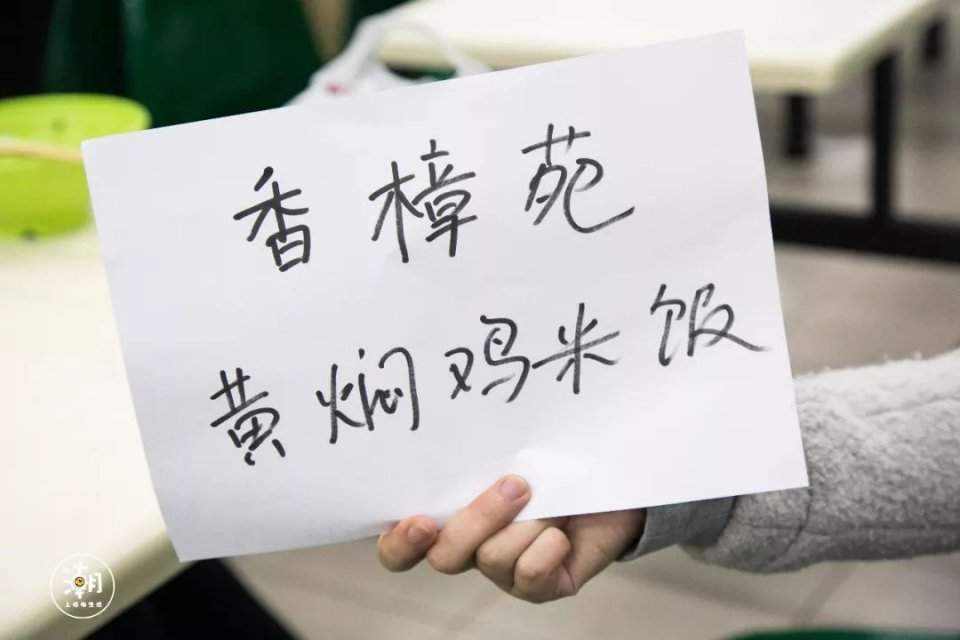 香樟苑
黄焖鸡米饭
潮